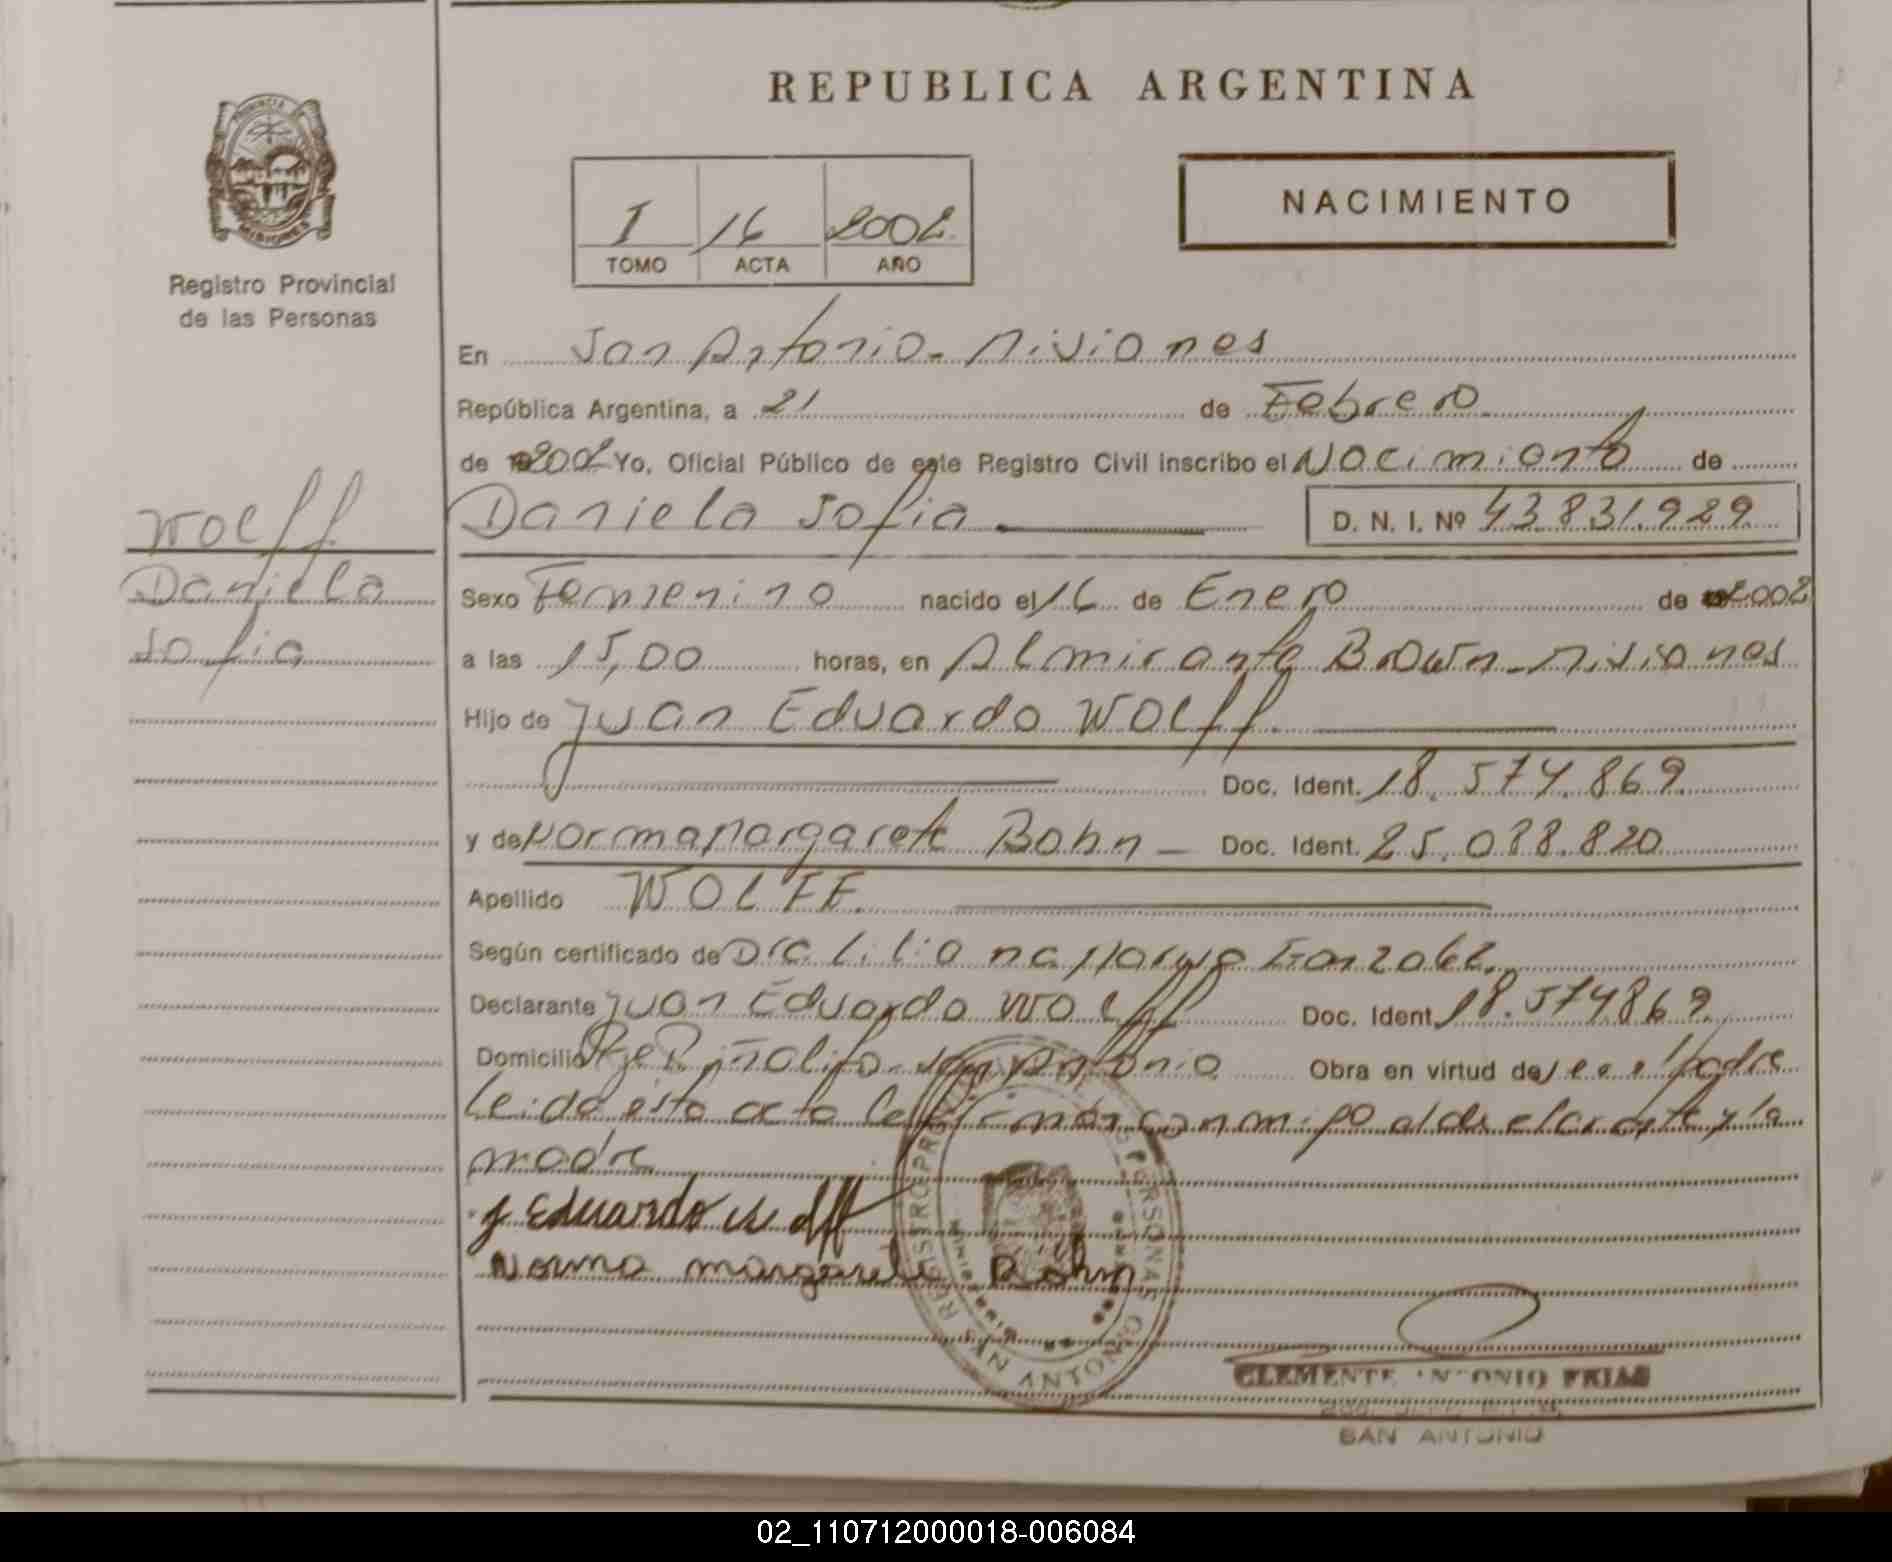 PROVINCIA
MISIONES
Registro Provincial
de las Personas
REPUBLICA ARGENTINA
NACIMIENTO
I 16 2002
TOMO ACTA AÑO
En San Antonio - Misiones
República Argentina, a 21 de Febrero
de 2002 Yo, Oficial Público de este Registro Civil inscribo el Nacimiento de
Daniela Sofia D. N. I. Nº 43.831.929
Wolff
Daniela
Sofia
Sexo Femenino nacido el 16 de Enero de 2002
a las 15,00 horas, en Almirante Brown - Misiones
Hijo de Juan Eduardo Wolff.
Doc. Ident. 18.574.869
y de Norma Margarete Bohn - Doc. Ident. 25.088.820
Apellido WOLFF.
Según certificado de Dra Liliana Gonzalez.
Declarante Juan Eduardo Wolff Doc. Ident. 18.574869
Domicilio Piñalito - San Antonio Obra en virtud de ser el Padre
Leida esta acta la firman conmigo el declarante y la
madre
J Eduardo Wolff
Norma margarete Böhn
REGISTRO PERSONAS
SAN ANTONIO
CLEMENTE ANTONIO FRIAS
SAN ANTONIO
02_110712000018-006084